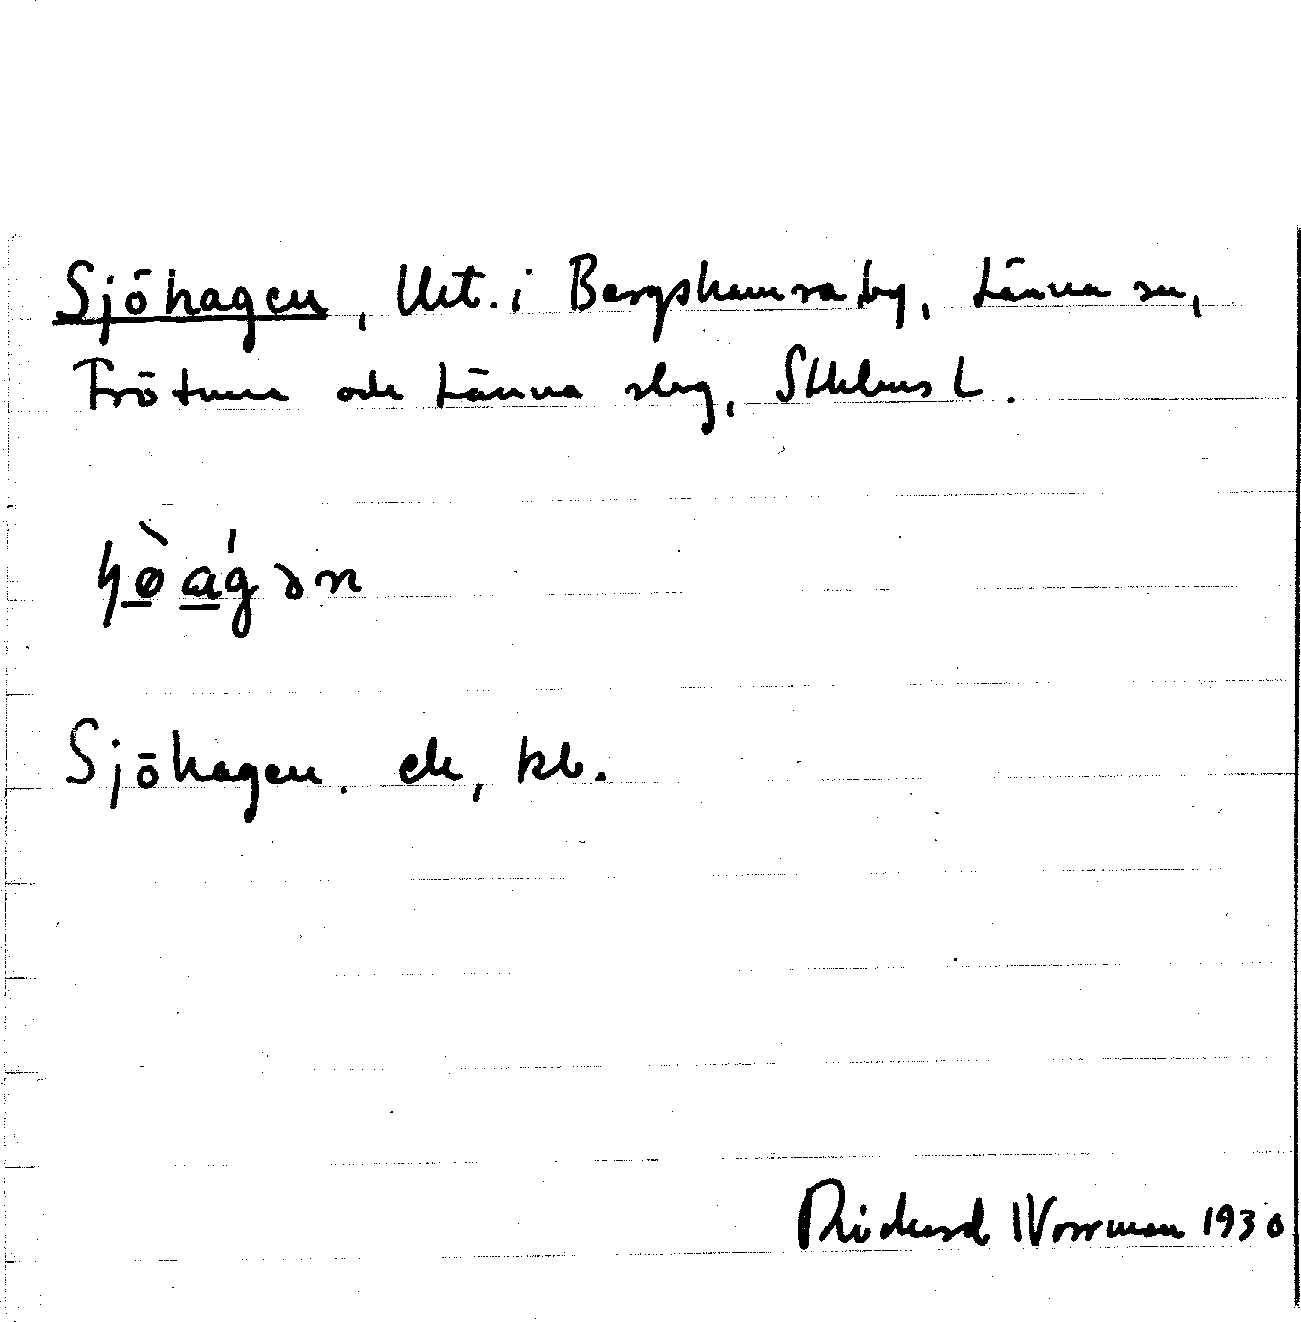 Sjöhagen, Utt. i Bergshamra by, Länna sn,
Frötuna och Länna slg, Sthlms L.
Sjöhagen. ek, kb.
Rickard Norrman 1930